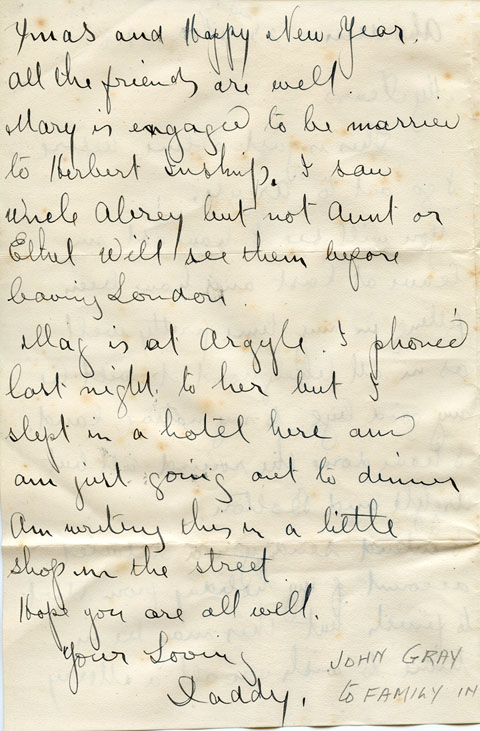 Xmas and Happy New Year.
all the friends are well.
Mary is engaged to be married
to Herbert Inship. I saw
Uncle Abrey but not Aunt or
Ethel Will see them before
leaving London.
Mag is at Argyle. I phone'd
last night, to her but I
slept in a hotel here and
am just going out to dinner
Am writing this in a little
shop in the street
Hope you are all well.
Your Loving
Daddy.
JOHN GRAY
to FAMILY IN